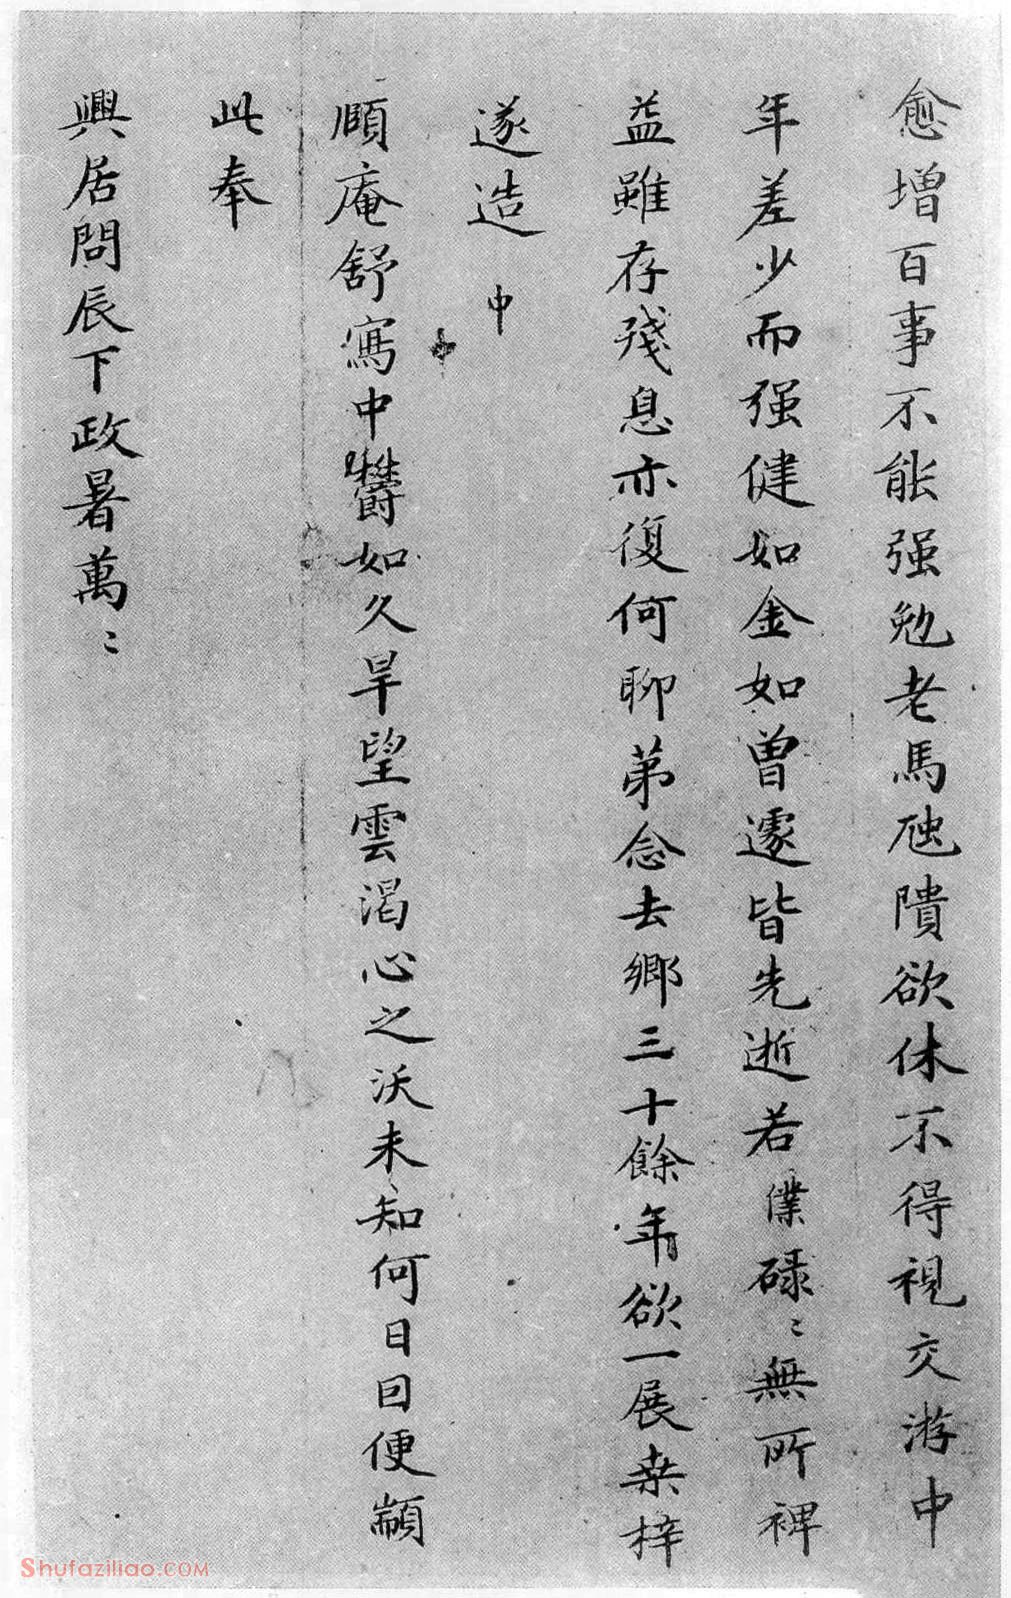 愈增百事不能强勉老馬虺隤欲休不得視交游中
年差少而强健如金如曾遽皆先逝若僕碌〻無所裨
益雖存殘息亦復何聊弟念去鄉三十餘年欲一展桒梓
遂造中
頤庵舒寫中欝如久旱望雲渴心之沃未知何日因便顓
此奉
興居問辰下政暑萬〻
Shufaziliao.COM